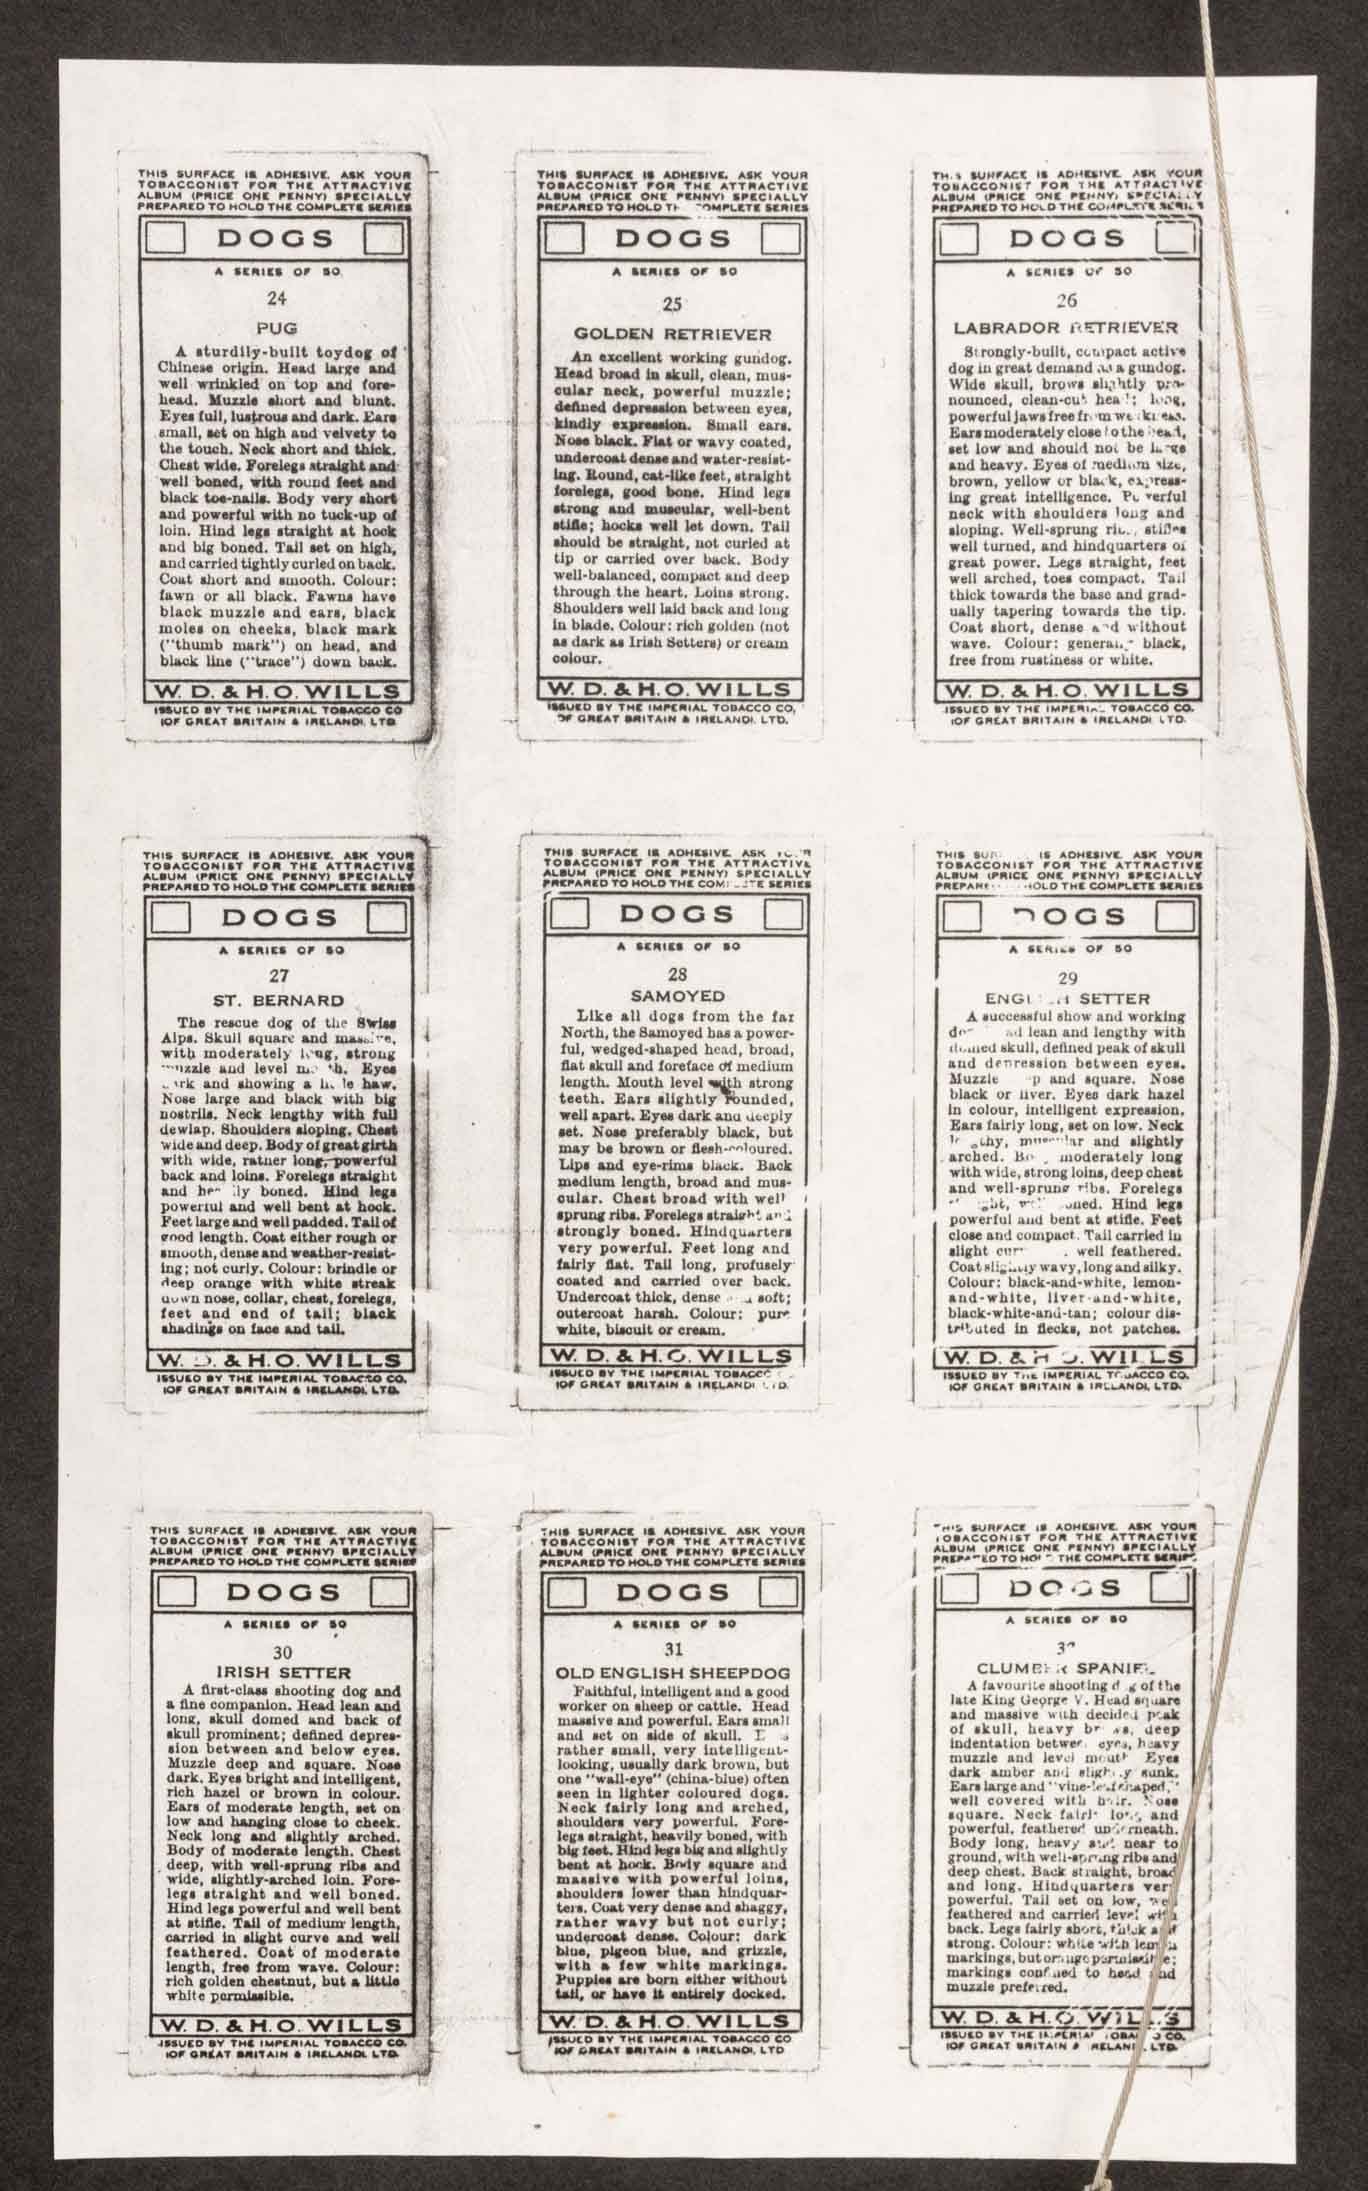 THIS SURFACE IS ADHESIVE. ASK YOUR
TOBACCONIST FOR THE ATTRACTIVE
ALBUM (PRICE ONE PENNY) SPECIALLY
PREPARED TO HOLD THE COMPLETE SERIES
DOGS
A SERIES OF 50
24
PUG
A sturdily-built toydog of
Chinese origin. Head large and
well wrinkled on top and fore-
head. Muzzle short and blunt.
Eyes full, lustrous and dark. Ears
small, set on high and velvety to
the touch. Neck short and thick.
Chest wide. Forelegs straight and
well boned, with round feet and
black toe-nails. Body very short
and powerful with no tuck-up of
loin. Hind legs straight at hock
and big boned. Tail set on high,
and carried tightly curled on back.
Coat short and smooth. Colour:
fawn or all black. Fawns have
black muzzle and ears, black
moles on cheeks, black mark
("thumb mark") on head, and
black line ("trace") down back.
W. D. & H. O. WILLS
ISSUED BY THE IMPERIAL TOBACCO CO
(OF GREAT BRITAIN & IRELAND), LTD
THIS SURFACE IS ADHESIVE. ASK YOUR
TOBACCONIST FOR THE ATTRACTIVE
ALBUM (PRICE ONE PENNY) SPECIALLY
PREPARED TO HOLD COMPLETE SERIES
DOGS
A SERIES OF 50
25
GOLDEN RETRIEVER
An excellent working gundog.
Head broad in skull, clean, mus-
cular neck, powerful muzzle;
defined depression between eyes,
kindly expression. Small ears.
Nose black. Flat or wavy coated,
undercoat dense and water-resist-
ing. Round, cat-like feet, straight
forelegs, good bone. Hind legs
strong and muscular, well-bent
stifle; hocks well let down. Tail
should be straight, not curled at
tip or carried over back. Body
well-balanced, compact and deep
through the heart. Loins strong.
Shoulders well laid back and long
in blade. Colour: rich golden (not
as dark as Irish Setters) or cream
colour.
W. D. & H. O. WILLS
ISSUED BY THE IMPERIAL TOBACCO CO,
OF GREAT BRITAIN & IRELAND), LTD.
THIS SURFACE IS ADHESIVE. ASK YOUR
TOBACCONIST FOR THE ATTRACTIVE
ALBUM (PRICE ONE PENNY) SPECIALLY
PREPARED TO HOLD THE COMPLETE SERIES
DOGS
A SERIES OF 50
26
LABRADOR RETRIEVER
Strongly-built, compact active
dog in great demand as a gundog.
Wide skull, brows slightly pro-
nounced, clean-cut head; long,
powerful jaws free from weakness.
Ears moderately close to the head,
set low and should not be large
and heavy. Eyes of medium size,
brown, yellow or black, express-
ing great intelligence. Powerful
neck with shoulders long and
sloping. Well-sprung ribs, stifles
well turned, and hindquarters of
great power. Legs straight, feet
well arched, toes compact. Tail
thick towards the base and grad-
ually tapering towards the tip.
Coat short, dense and without
wave. Colour: generally black,
free from rustiness or white.
W. D. & H. O. WILLS
ISSUED BY THE IMPERIAL TOBACCO CO.
(OF GREAT BRITAIN & IRELAND) LTD.
THIS SURFACE IS ADHESIVE. ASK YOUR
TOBACCONIST FOR THE ATTRACTIVE
ALBUM (PRICE ONE PENNY) SPECIALLY
PREPARED TO HOLD THE COMPLETE SERIES
DOGS
A SERIES OF 50
27
ST. BERNARD
The rescue dog of the Swiss
Alps. Skull square and massive,
with moderately long, strong
muzzle and level mouth. Eyes
dark and showing a little haw.
Nose large and black with big
nostrils. Neck lengthy with full
dewlap. Shoulders sloping. Chest
wide and deep. Body of great girth
with wide, rather long, powerful
back and loins. Forelegs straight
and heavily boned. Hind legs
powerful and well bent at hock.
Feet large and well padded. Tail of
good length. Coat either rough or
smooth, dense and weather-resist-
ing; not curly. Colour: brindle or
deep orange with white streak
down nose, collar, chest, forelegs,
feet and end of tail; black
shadings on face and tail.
W. D. & H. O. WILLS
ISSUED BY THE IMPERIAL TOBACCO CO.
(OF GREAT BRITAIN & IRELAND), LTD.
THIS SURFACE IS ADHESIVE. ASK YOUR
TOBACCONIST FOR THE ATTRACTIVE
ALBUM (PRICE ONE PENNY) SPECIALLY
PREPARED TO HOLD THE COMPLETE SERIES
DOGS
A SERIES OF 50
28
SAMOYED
Like all dogs from the far
North, the Samoyed has a power-
ful, wedged-shaped head, broad,
flat skull and foreface of medium
length. Mouth level with strong
teeth. Ears slightly rounded,
well apart. Eyes dark and deeply
set. Nose preferably black, but
may be brown or flesh-coloured.
Lips and eye-rims black. Back
medium length, broad and mus-
cular. Chest broad with well
sprung ribs. Forelegs straight and
strongly boned. Hindquarters
very powerful. Feet long and
fairly flat. Tail long, profusely
coated and carried over back.
Undercoat thick, dense soft;
outercoat harsh. Colour: pure
white, biscuit or cream.
W. D. & H. O. WILLS
ISSUED BY THE IMPERIAL TOBACCO
(OF GREAT BRITAIN & IRELAND) LTD.
THIS IS ADHESIVE. ASK YOUR
TOBACCONIST FOR THE ATTRACTIVE
ALBUM (PRICE ONE PENNY) SPECIALLY
HOLD THE COMPLETE SERIES
DOGS
A SERIES OF 50
29
ENGLISH SETTER
A successful show and working
lean and lengthy with
domed skull, defined peak of skull
and depression between eyes.
Muzzle and square. Nose
black or liver. Eyes dark hazel
in colour, intelligent expression.
Ears fairly long, set on low. Neck
lengthy, muscular and slightly
arched. moderately long
with wide, strong loins, deep chest
and well-sprung ribs. Forelegs
boned. Hind legs
powerful and bent at stifle. Feet
close and compact. Tail carried in
slight well feathered.
Coat slightly wavy, long and silky.
Colour: black-and-white, lemon-
and-white, liver-and-white,
black-white-and-tan; colour dis-
tributed in flecks, not patches.
W. D. & H. O. WILLS
ISSUED BY THE IMPERIAL TOBACCO CO.
(OF GREAT BRITAIN & IRELAND), LTD.
THIS SURFACE IS ADHESIVE. ASK YOUR
TOBACCONIST FOR THE ATTRACTIVE
ALBUM (PRICE ONE PENNY) SPECIALLY
PREPARED TO HOLD THE COMPLETE SERIES
DOGS
A SERIES OF 50
30
IRISH SETTER
A first-class shooting dog and
a fine companion. Head lean and
long, skull domed and back of
skull prominent; defined depres-
sion between and below eyes.
Muzzle deep and square. Nose
dark. Eyes bright and intelligent,
rich hazel or brown in colour.
Ears of moderate length, set on
low and hanging close to cheek.
Neck long and slightly arched.
Body of moderate length. Chest
deep, with well-sprung ribs and
wide, slightly-arched loin. Fore-
legs straight and well boned.
Hind legs powerful and well bent
at stifle. Tail of medium length,
carried in slight curve and well
feathered. Coat of moderate
length, free from wave. Colour:
rich golden chestnut, but a little
white permissible.
W. D. & H. O. WILLS
ISSUED BY THE IMPERIAL TOBACCO CO.
(OF GREAT BRITAIN & IRELAND), LTD.
THIS SURFACE IS ADHESIVE. ASK YOUR
TOBACCONIST FOR THE ATTRACTIVE
ALBUM (PRICE ONE PENNY) SPECIALLY
PREPARED TO HOLD THE COMPLETE SERIES
DOGS
A SERIES OF 50
31
OLD ENGLISH SHEEPDOG
Faithful, intelligent and a good
worker on sheep or cattle. Head
massive and powerful. Ears small
and set on side of skull.
rather small, very intelligent-
looking, usually dark brown, but
one "wall-eye" (china-blue) often
seen in lighter coloured dogs.
Neck fairly long and arched,
shoulders very powerful. Fore-
legs straight, heavily boned, with
big feet. Hind legs big and slightly
bent at hock. Body square and
massive with powerful loins,
shoulders lower than hindquar-
ters. Coat very dense and shaggy,
rather wavy but not curly;
undercoat dense. Colour: dark
blue, pigeon blue, and grizzle,
with a few white markings.
Puppies are born either without
tail, or have it entirely docked.
W. D. & H. O. WILLS
ISSUED BY THE IMPERIAL TOBACCO CO
(OF GREAT BRITAIN & IRELAND), LTD
THIS SURFACE IS ADHESIVE. ASK YOUR
TOBACCONIST FOR THE ATTRACTIVE
ALBUM (PRICE ONE PENNY) SPECIALLY
PREPARED TO HOLD THE COMPLETE SERIES
DOGS
A SERIES OF 50
CLUMBER SPANIEL
A favourite shooting dog of the
late King George V. Head square
and massive with decided peak
of skull, heavy brows, deep
indentation between eyes, heavy
muzzle and level mouth Eyes
dark amber and slightly sunk.
Ears large and "vine-leaf shaped,"
well covered with hair. Nose
square. Neck fairly long, and
powerful, feathered underneath.
Body long, heavy and near to
ground, with well-sprung ribs and
deep chest. Back straight, broad
and long. Hindquarters very
powerful. Tail set on low, well
feathered and carried level with
back. Legs fairly short, thick and
strong. Colour: white with lemon
markings, but orange permissible;
markings confined to head and
muzzle preferred.
W. D. & H. O. WILLS
ISSUED BY THE IMPERIAL TOBACCO CO.
(OF GREAT BRITAIN & IRELAND), LTD.